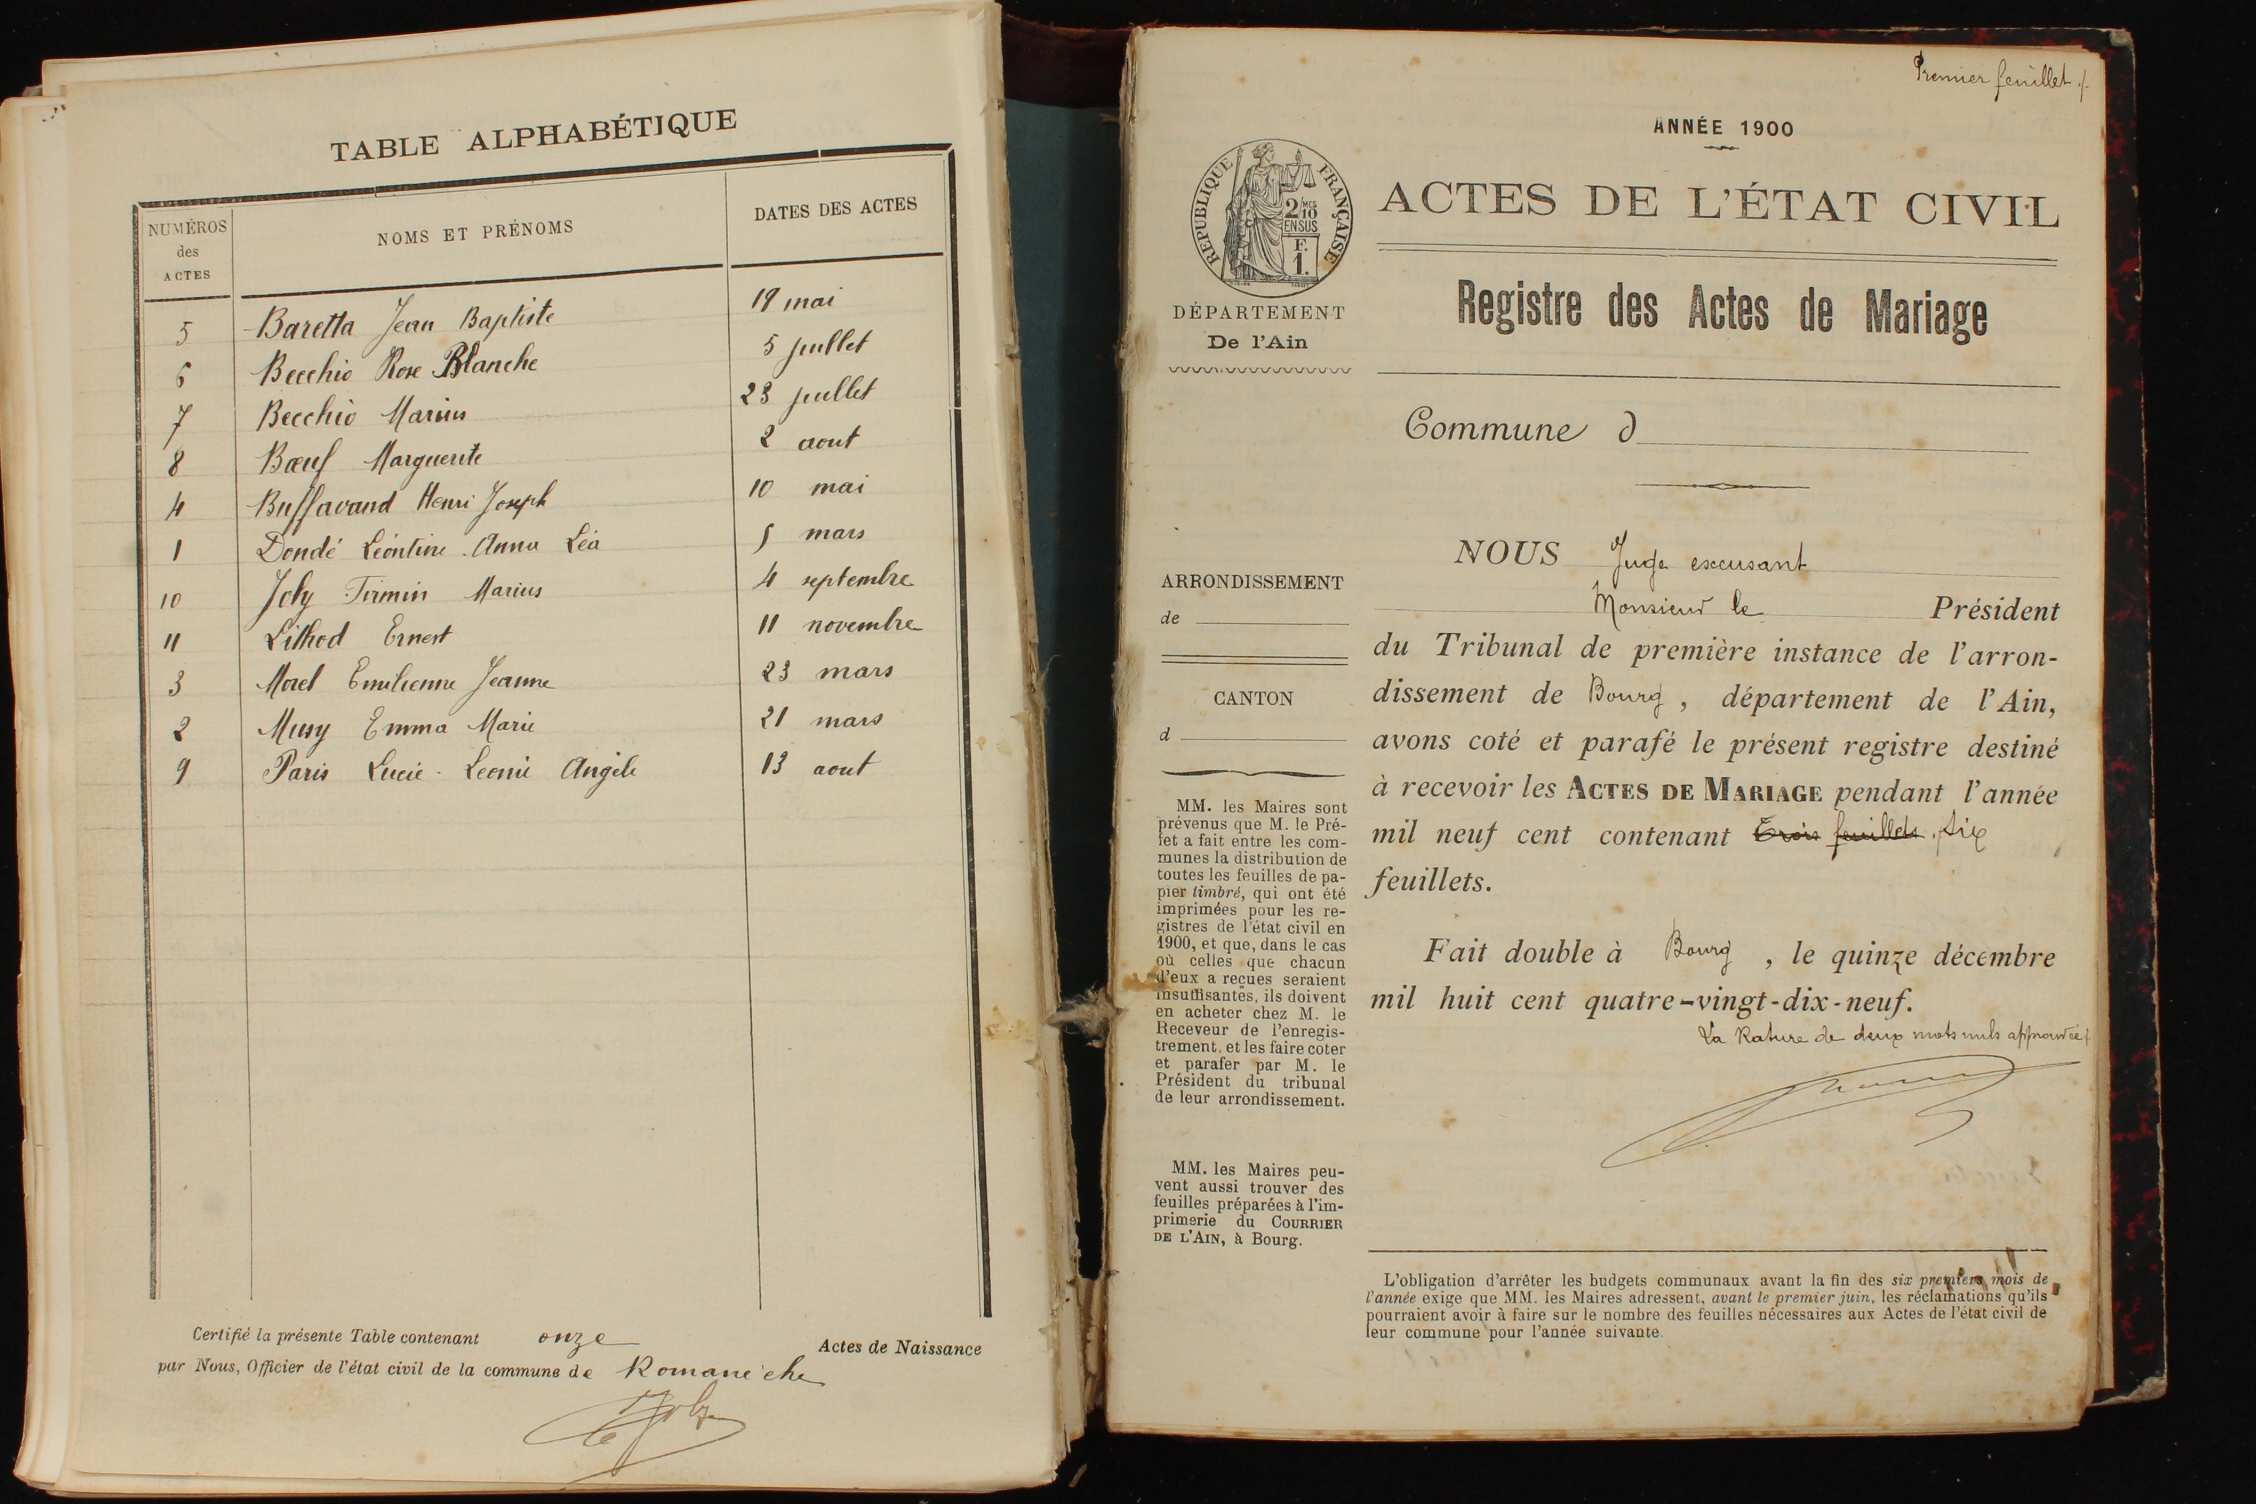 TABLE ALPHABÉTIQUE
NUMÉROS des ACTES NOMS ET PRÉNOMS DATES DES ACTES
5 Baretta Jean Baptiste 19 mai
6 Becchio Rose Blanche 5 juillet
7 Becchio Marius 23 juillet
8 Bœuf Marguerite 2 aout
4 Buffavand Henri Joseph 10 mai
1 Dondé Léontine Anna Léa mars
10 Joly Firmin Marius 4 septembre
11 Lithod Ernest 11 novembre
3 Morel Emilienne Jeanne 23 mars
2 Musy Emma Marie 21 mars
9 Paris Lucie Leonie Angèle 13 aout
Certifié la présente Table contenant onze Actes de Naissance
par Nous, Officier de l'état civil de la commune de Romanèche
Joly
Premier feuillet
ANNÉE 1900
RÉPUBLIQUE FRANÇAISE
2/10 EN SUS
F. 1.
ACTES DE L'ÉTAT CIVIL
Registre des Actes de Mariage
DÉPARTEMENT
De l'Ain
Commune d
ARRONDISSEMENT
de
CANTON
d
MM. les Maires sont
prévenus que M. le Pré-
fet a fait entre les com-
munes la distribution de
toutes les feuilles de pa-
pier timbré, qui ont été
imprimées pour les re-
gistres de l'état civil en
1900, et que, dans le cas
où celles que chacun
d'eux a reçues seraient
insuffisantes, ils doivent
en acheter chez M. le
Receveur de l'enregis-
trement, et les faire coter
et parafer par M. le
Président du tribunal
de leur arrondissement.
MM. les Maires peu-
vent aussi trouver des
feuilles préparées à l'im-
primerie du COURRIER
DE L'AIN, à Bourg.
NOUS Juge excusant
Monsieur le Président
du Tribunal de première instance de l'arron-
dissement de Bourg, département de l'Ain,
avons coté et parafé le présent registre destiné
à recevoir les ACTES DE MARIAGE pendant l'année
mil neuf cent contenant Trois feuillets six
feuillets.
Fait double à Bourg, le quinze décembre
mil huit cent quatre-vingt-dix-neuf.
La Rature de deux mots nuls approuvée
L'obligation d'arrêter les budgets communaux avant la fin des six premiers mois de
l'année exige que MM. les Maires adressent, avant le premier juin, les réclamations qu'ils
pourraient avoir à faire sur le nombre des feuilles nécessaires aux Actes de l'état civil de
leur commune pour l'année suivante.